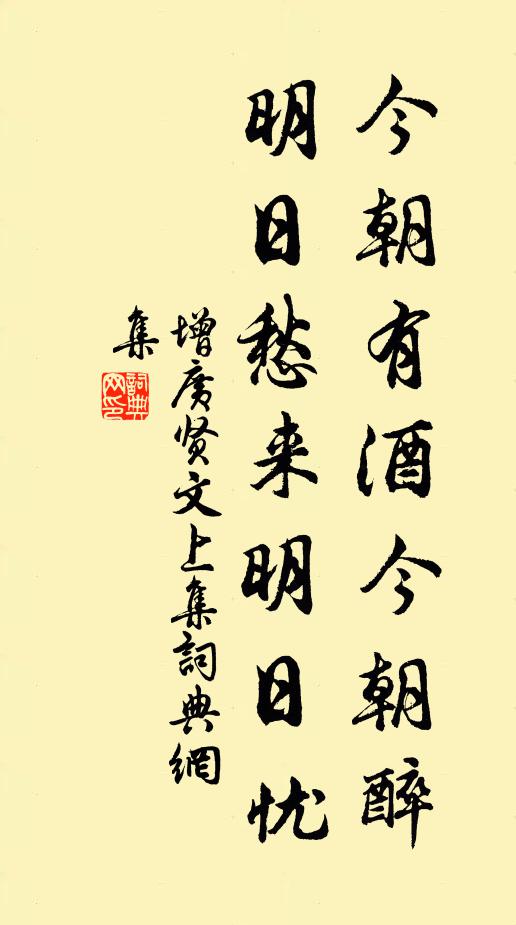 今朝有酒今朝醉
明日愁来明日忧
增廣贤文上集詞典網
集
詞典
网印